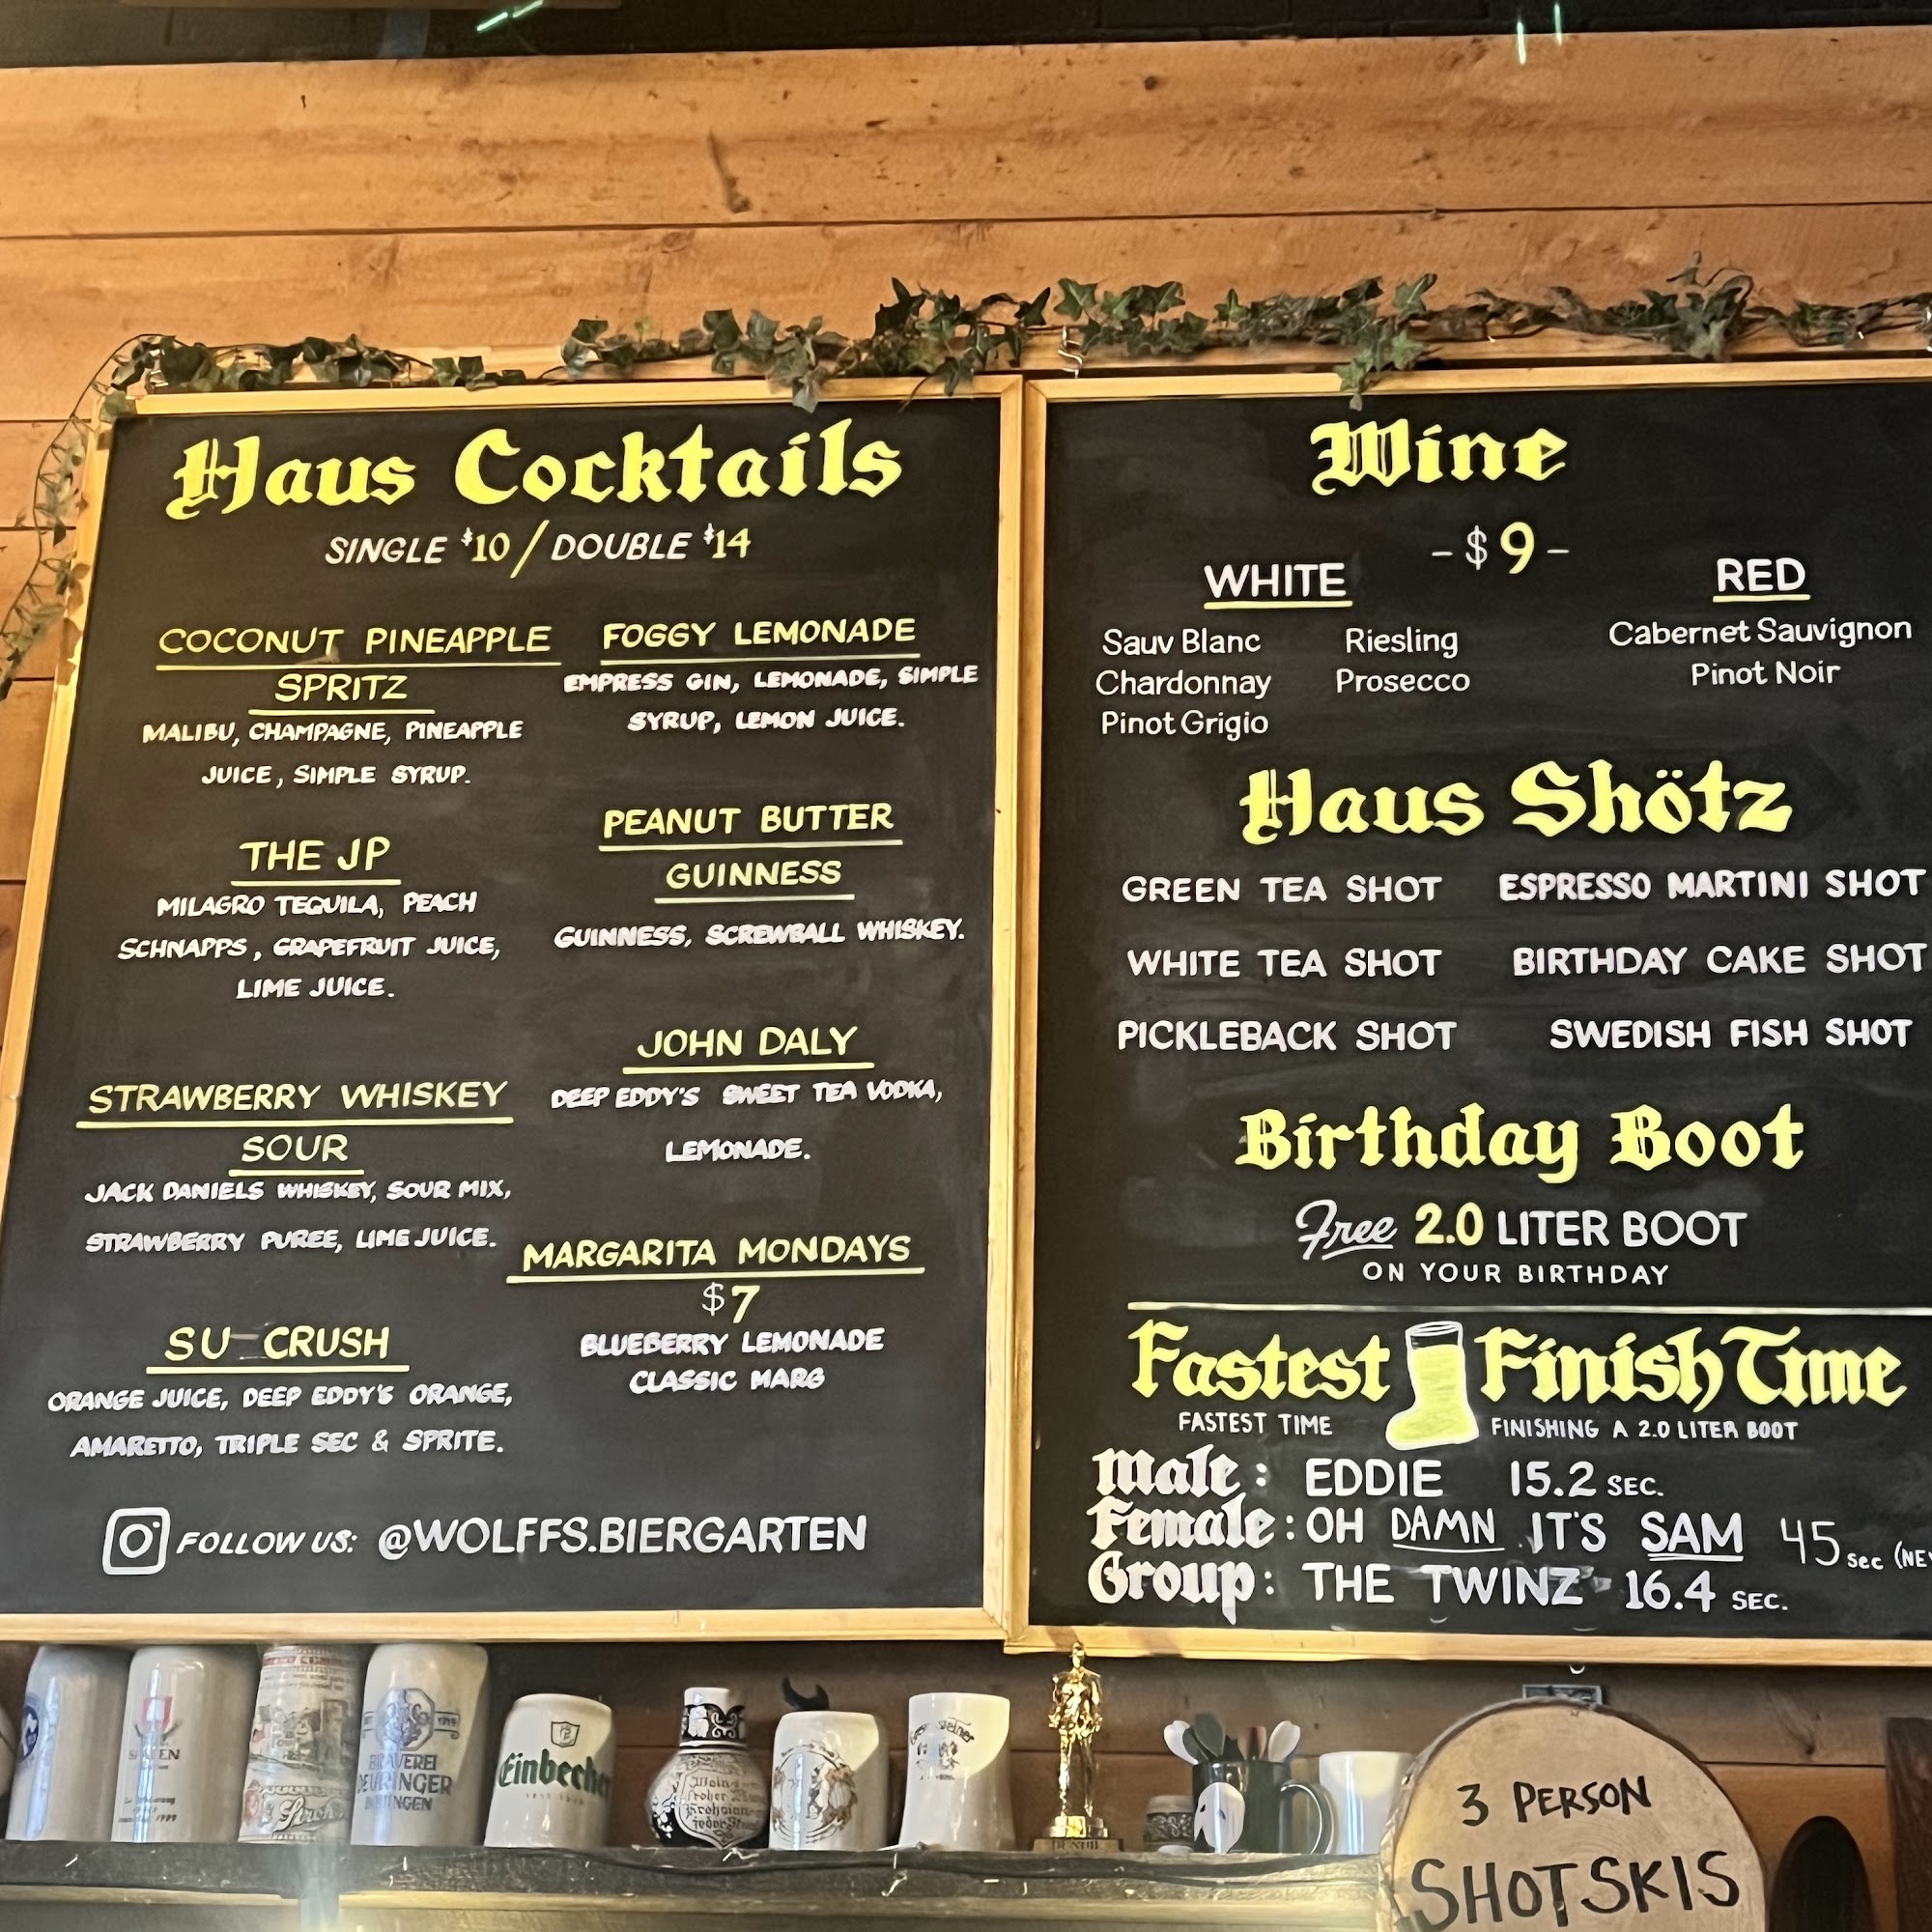 Haus Cocktails
SINGLE $10 / DOUBLE $14
COCONUT PINEAPPLE
SPRITZ
MALIBU, CHAMPAGNE, PINEAPPLE
JUICE, SIMPLE SYRUP.
THE JP
MILAGRO TEQUILA, PEACH
SCHNAPPS, GRAPEFRUIT JUICE,
LIME JUICE.
STRAWBERRY WHISKEY
SOUR
JACK DANIELS WHISKEY, SOUR MIX,
STRAWBERRY PUREE, LIME JUICE.
SU CRUSH
ORANGE JUICE, DEEP EDDY'S ORANGE,
AMARETTO, TRIPLE SEC & SPRITE.
FOGGY LEMONADE
EMPRESS GIN, LEMONADE, SIMPLE
SYRUP, LEMON JUICE.
PEANUT BUTTER
GUINNESS
GUINNESS, SCREWBALL WHISKEY.
JOHN DALY
DEEP EDDY'S SWEET TEA VODKA,
LEMONADE.
MARGARITA MONDAYS
$7
BLUEBERRY LEMONADE
CLASSIC MARG
FOLLOW US: @WOLFFS.BIERGARTEN
Wine
-$9-
WHITE
Sauv Blanc
Chardonnay
Pinot Grigio
Riesling
Prosecco
RED
Cabernet Sauvignon
Pinot Noir
Haus Shötz
GREEN TEA SHOT ESPRESSO MARTINI SHOT
WHITE TEA SHOT BIRTHDAY CAKE SHOT
PICKLEBACK SHOT SWEDISH FISH SHOT
Birthday Boot
Free 2.0 LITER BOOT
ON YOUR BIRTHDAY
Fastest Finish Time
FASTEST TIME FINISHING A 2.0 LITER BOOT
Male: EDDIE 15.2 SEC.
Female: OH DAMN IT'S SAM 45 sec
Group: THE TWINZ 16.4 SEC.
BRAUEREI
Einbecher
3 PERSON
SHOTSKIS